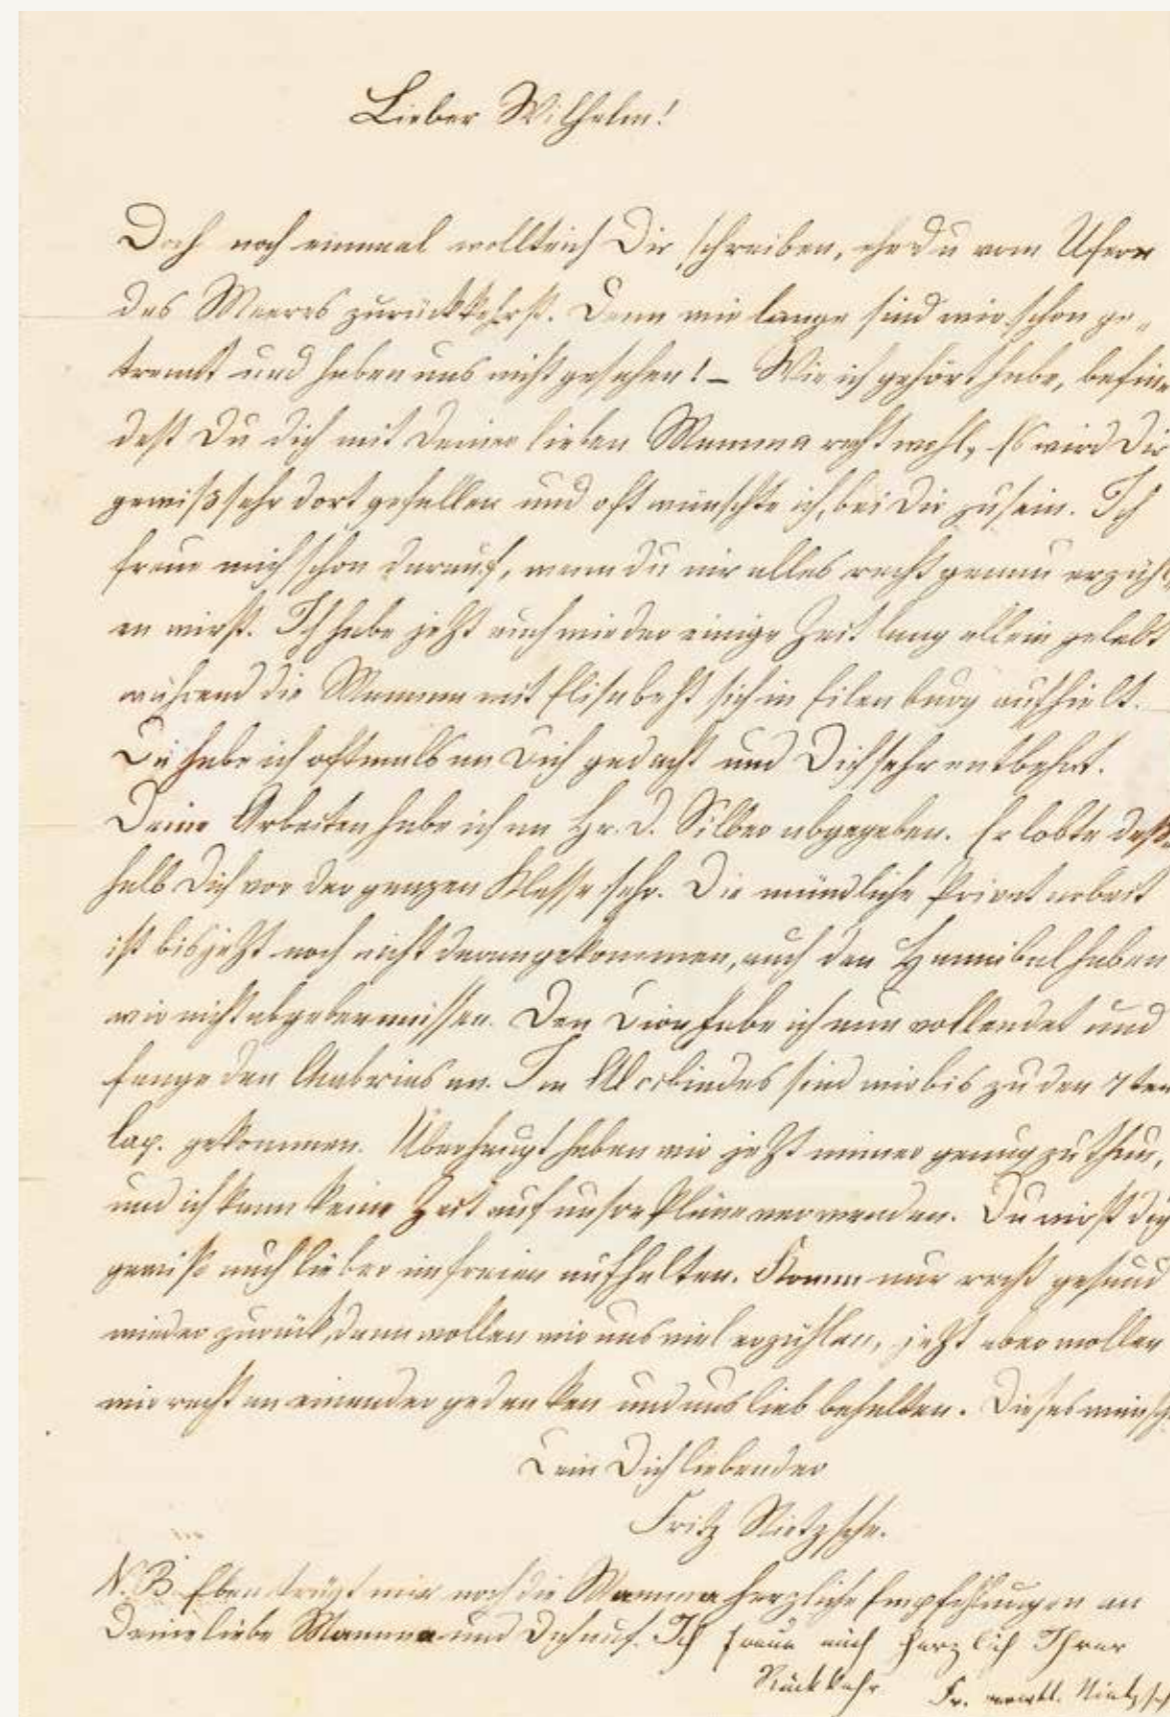 Lieber Wilhelm!
Doch noch einmal wollte ich Dir schreiben, ehe Du vom Ufern
des Meeres zurückkehrst. Denn wie lange sind wir schon ge-
trennt und haben uns nicht gesehen! – Wie ich gehört habe, befin
dest Du dich mit Deiner lieben Mamma recht wohl, Es wird Dir
gewiß sehr dort gefallen und oft wünschte ich, bei Dir zu sein. Ich
freue mich schon darauf, wenn du mir alles recht genau erzähl
en wirst. Ich habe jetzt auch wieder einige Zeit lang allein gelebt
während die Mamma mit Elisabeht sich in Eilenburg aufhielt.
Da habe ich oftmals an Dich gedacht und Dich sehr entbehrt.
Deine Arbeiten habe ich an Hr. D. Silber abgegeben. Er lobte deß-
halb Dich vor der ganzen Klasse sehr. Die mündliche Privatarbeit
ist bis jetzt noch nicht darangekommen, auch den Hannibal haben
wir nicht abgeben müssen. Den Dion habe ich nun vollendet und
fange den Chabrias an. Im Alcibiades sind wir bis zu den 7ten
Cap. gekommen. Überhaupt haben wir jetzt immer genug zu thun,
und ich kann keine Zeit auf unsre Pläne verwenden. Du wirst dich
gewiß auch lieber im freien aufhalten. Komm nur recht gesund
wieder zurück, dann wollen wir uns viel erzählen, jetzt aber wollen
wir recht an einander gedenken und uns lieb behalten. Dieses wünsch
Dein Dich liebender
Fritz Nietzsche.
N. B. Eben trägt mir noch die Mamma herzliche Empfehlungen an
Deine liebe Mamma und Dich auf. Ich freue mich herzlich Ihrer
Rückkehr Fr. Nietzsch